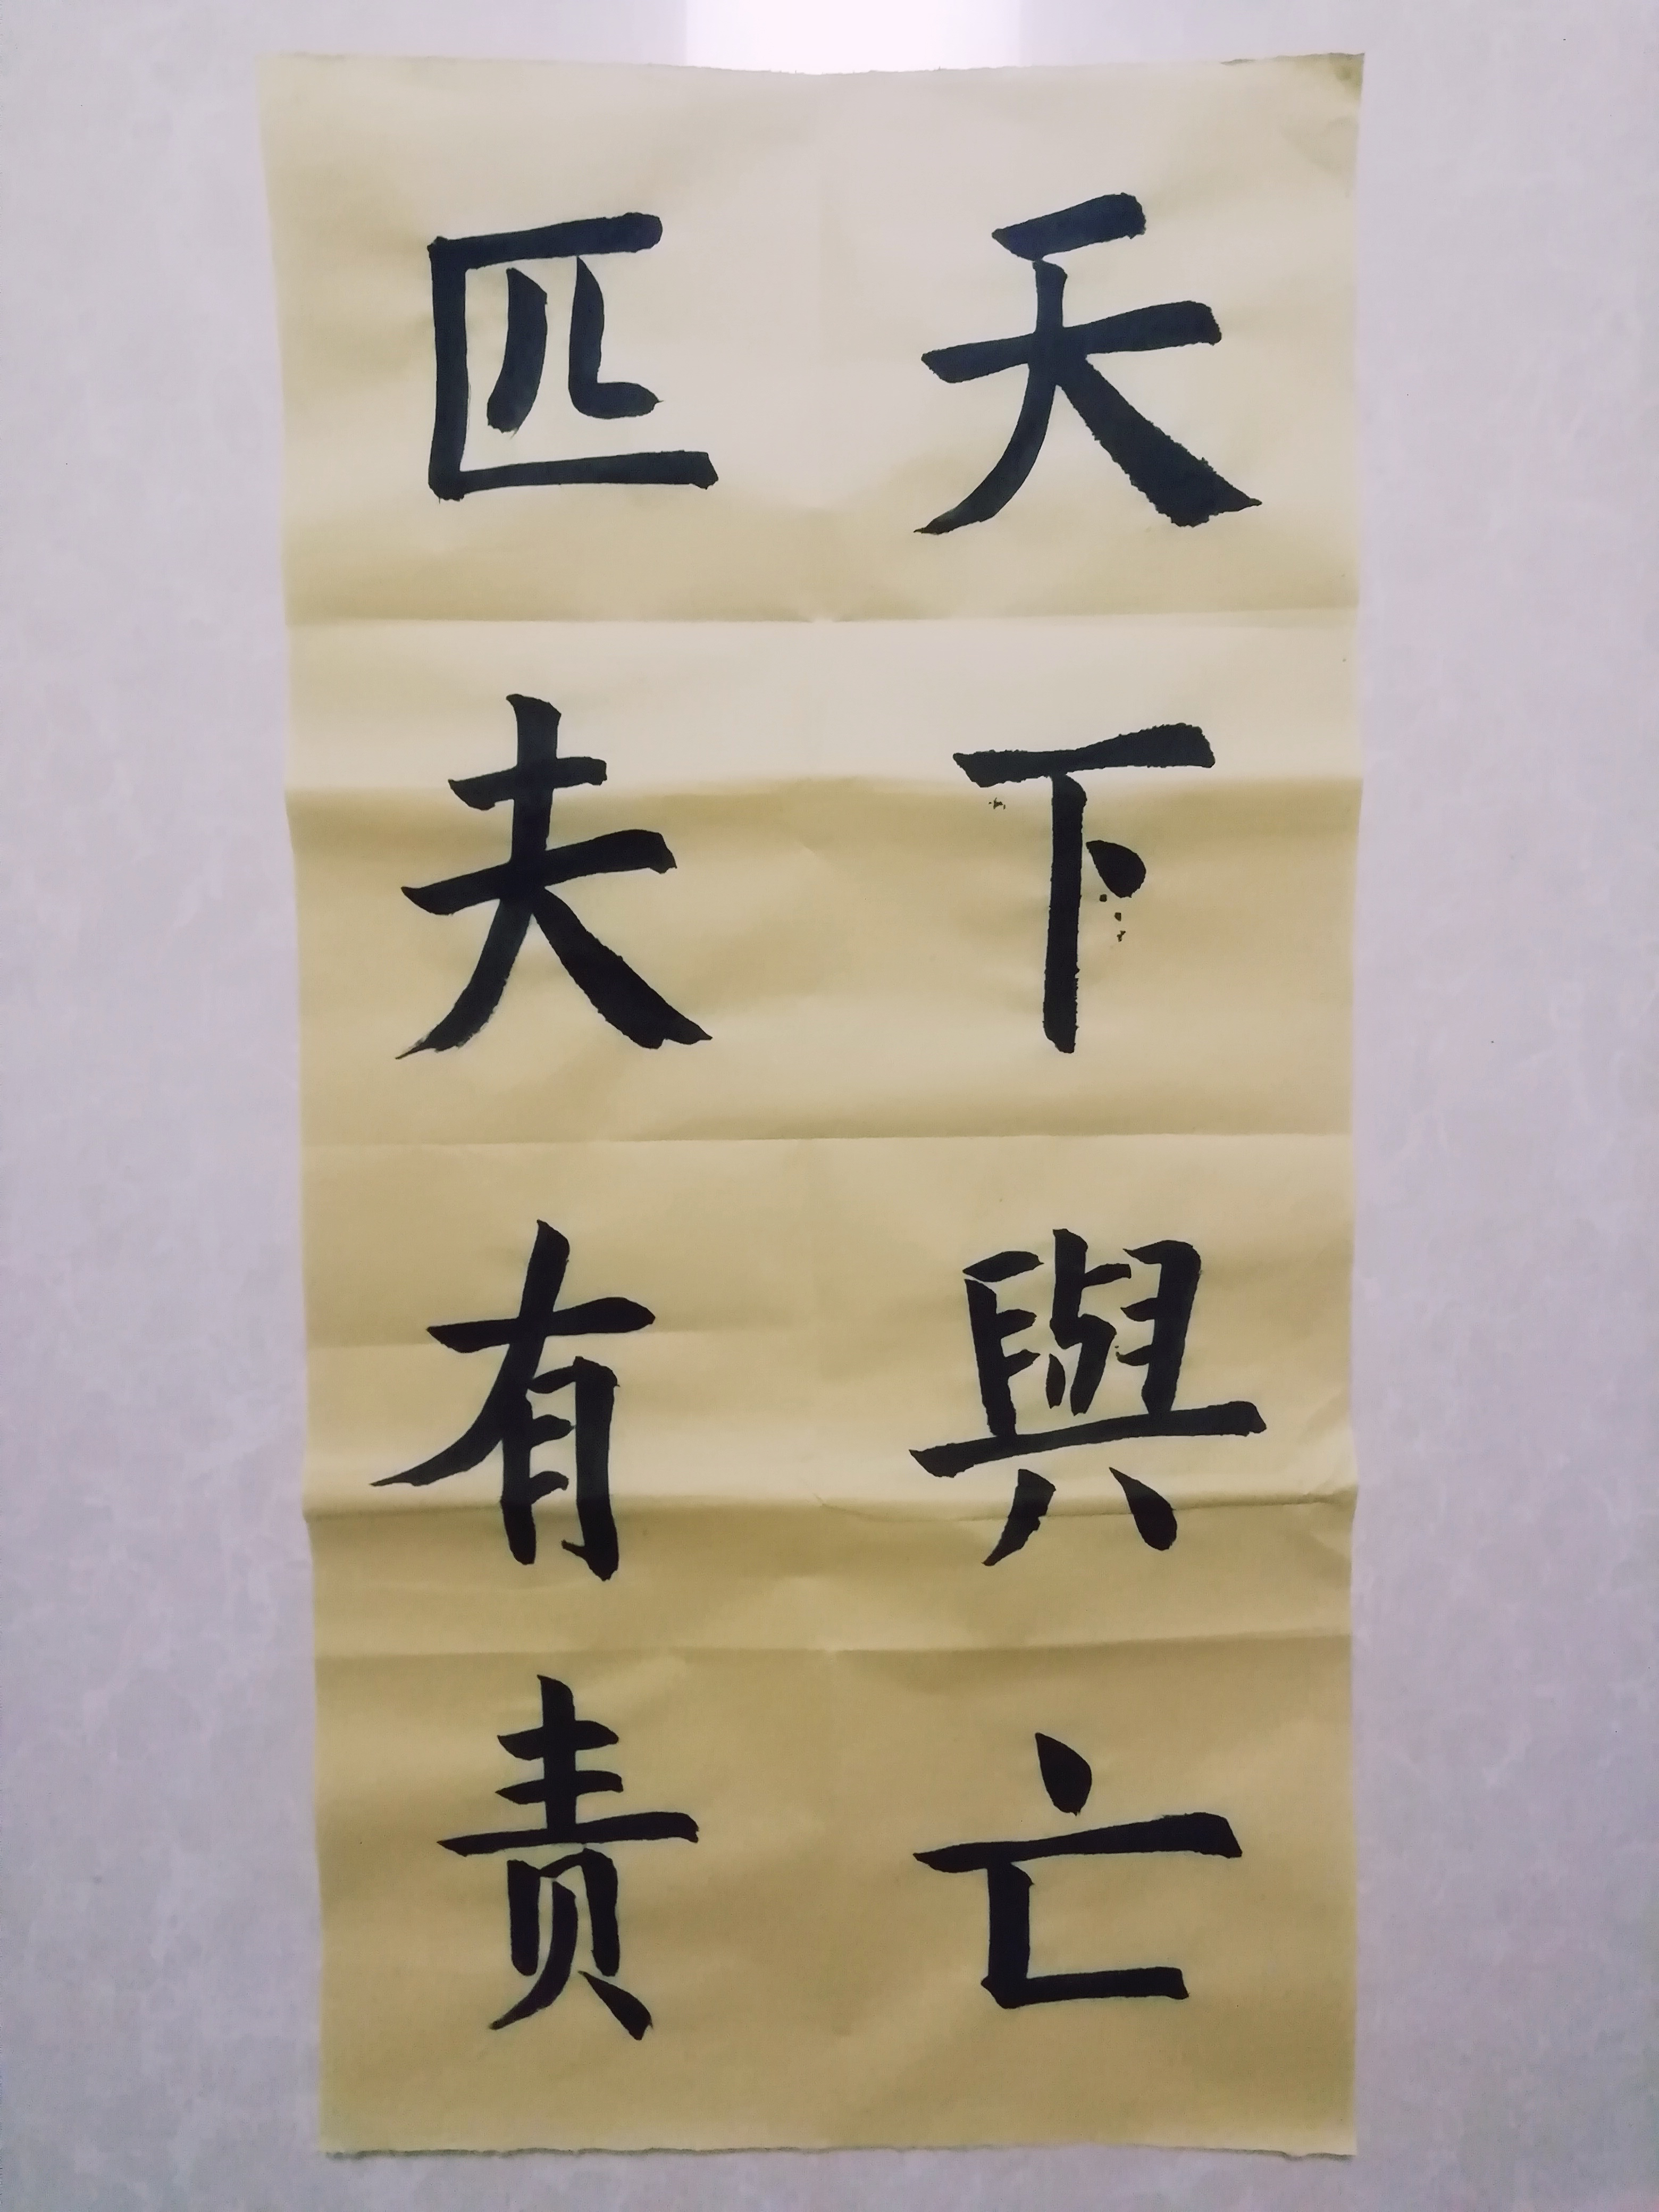 天下與亡
匹夫有责